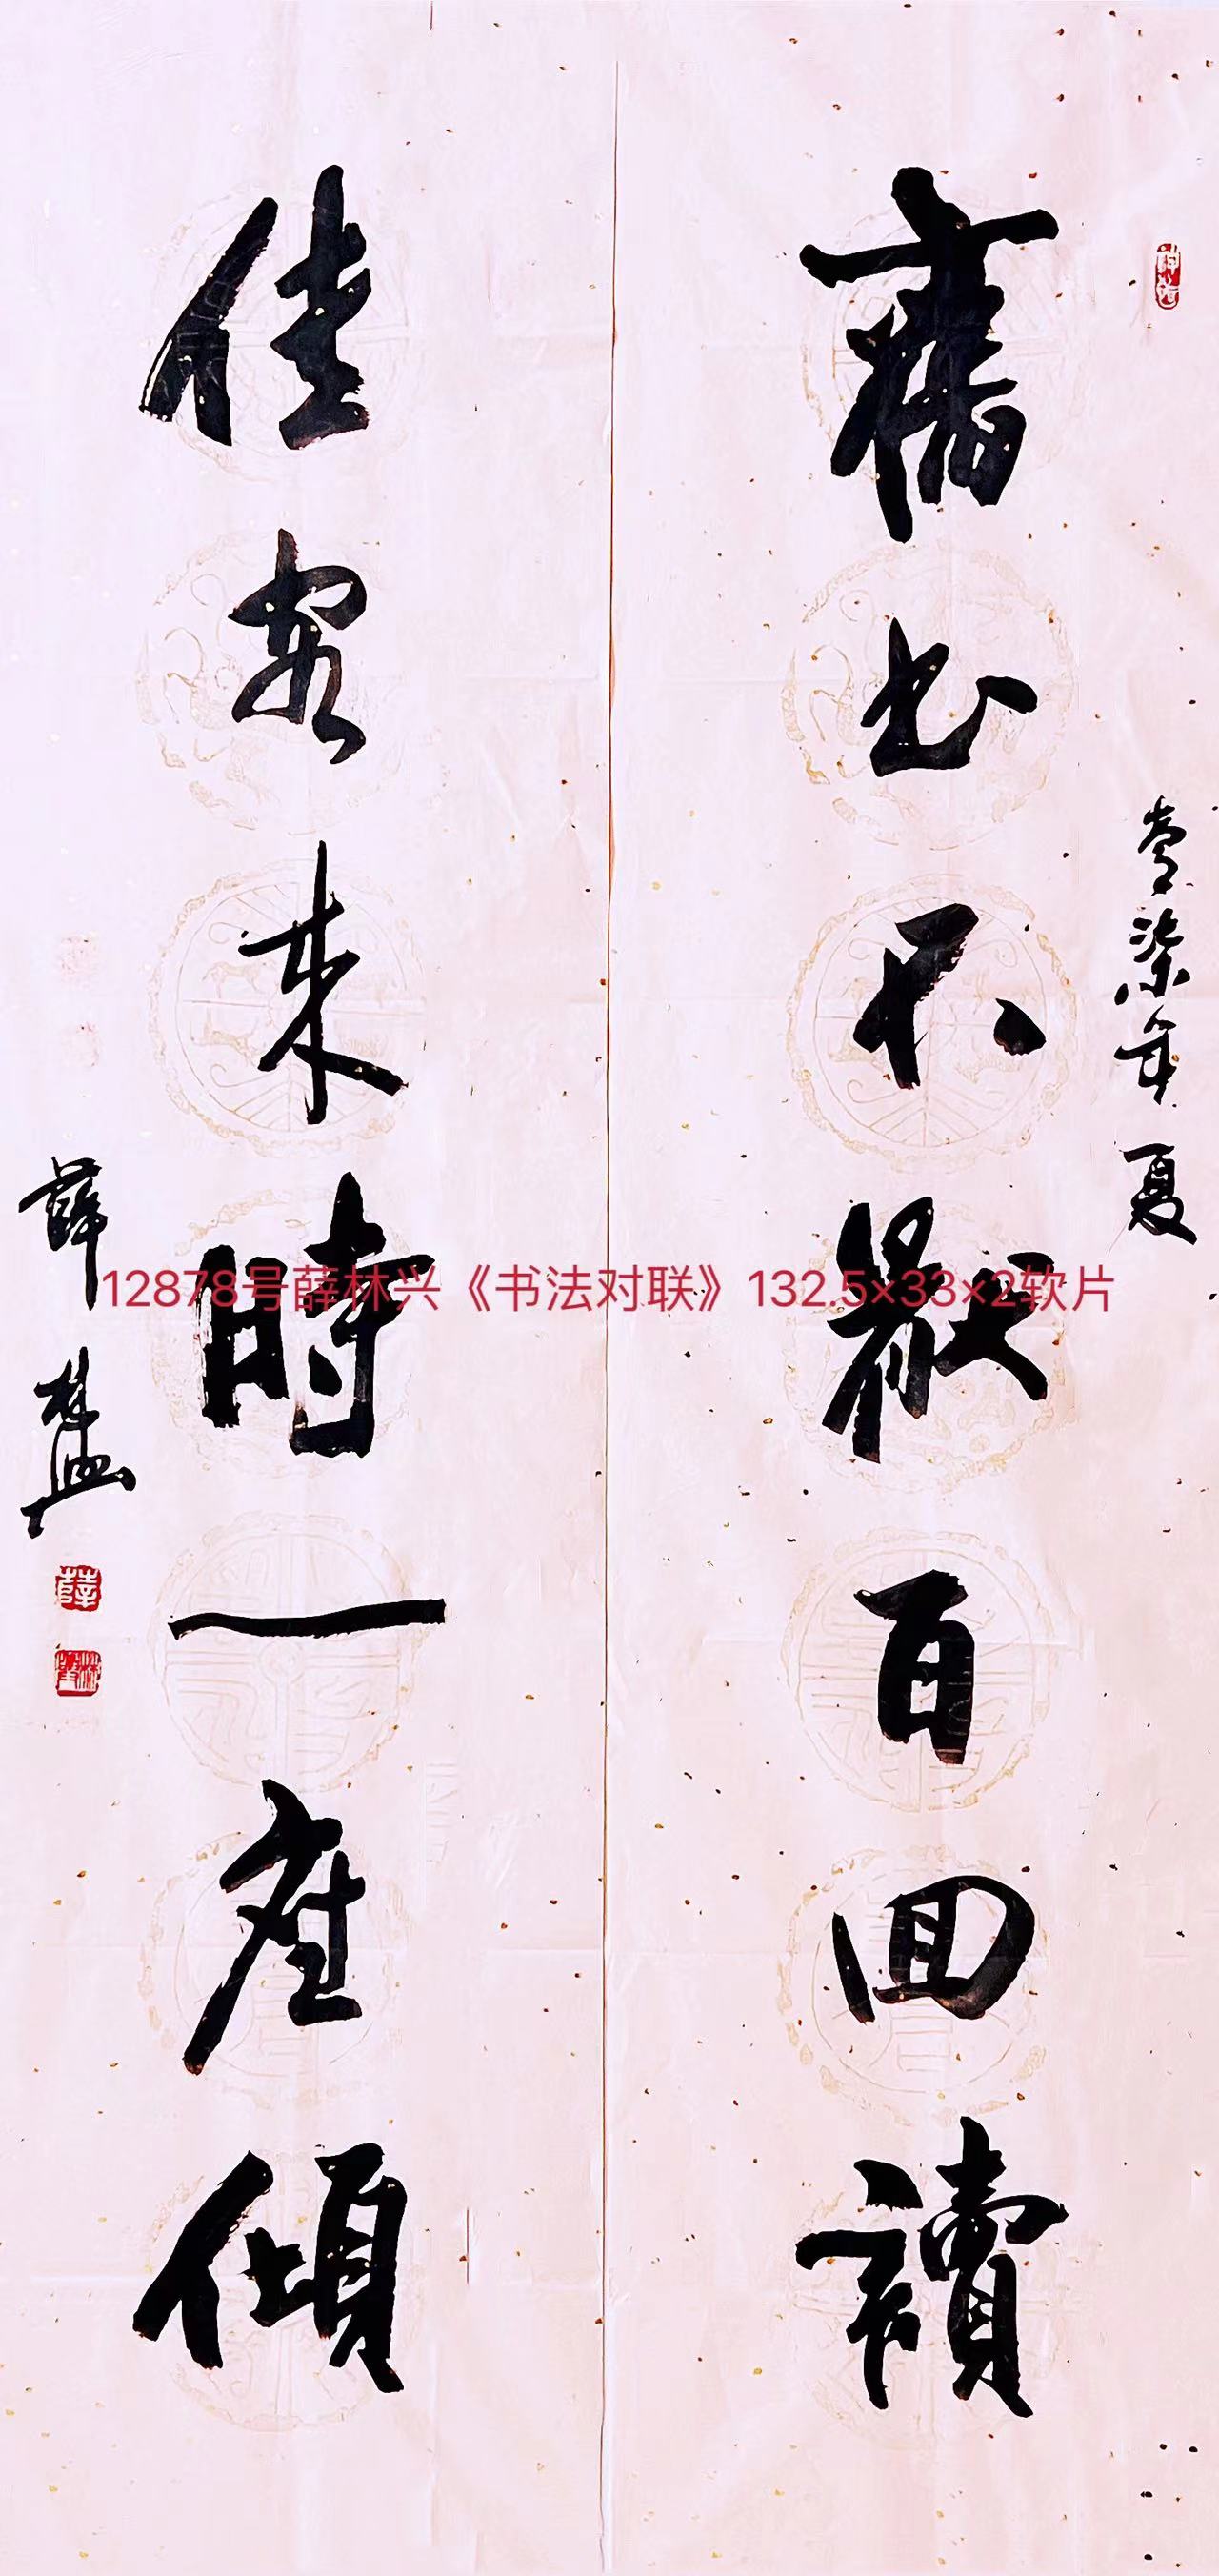 壹柒年夏
舊书不厭百回讀
佳客来時一座傾
薛林兴
12878号薛林兴《书法对联》132.5×33×2软片